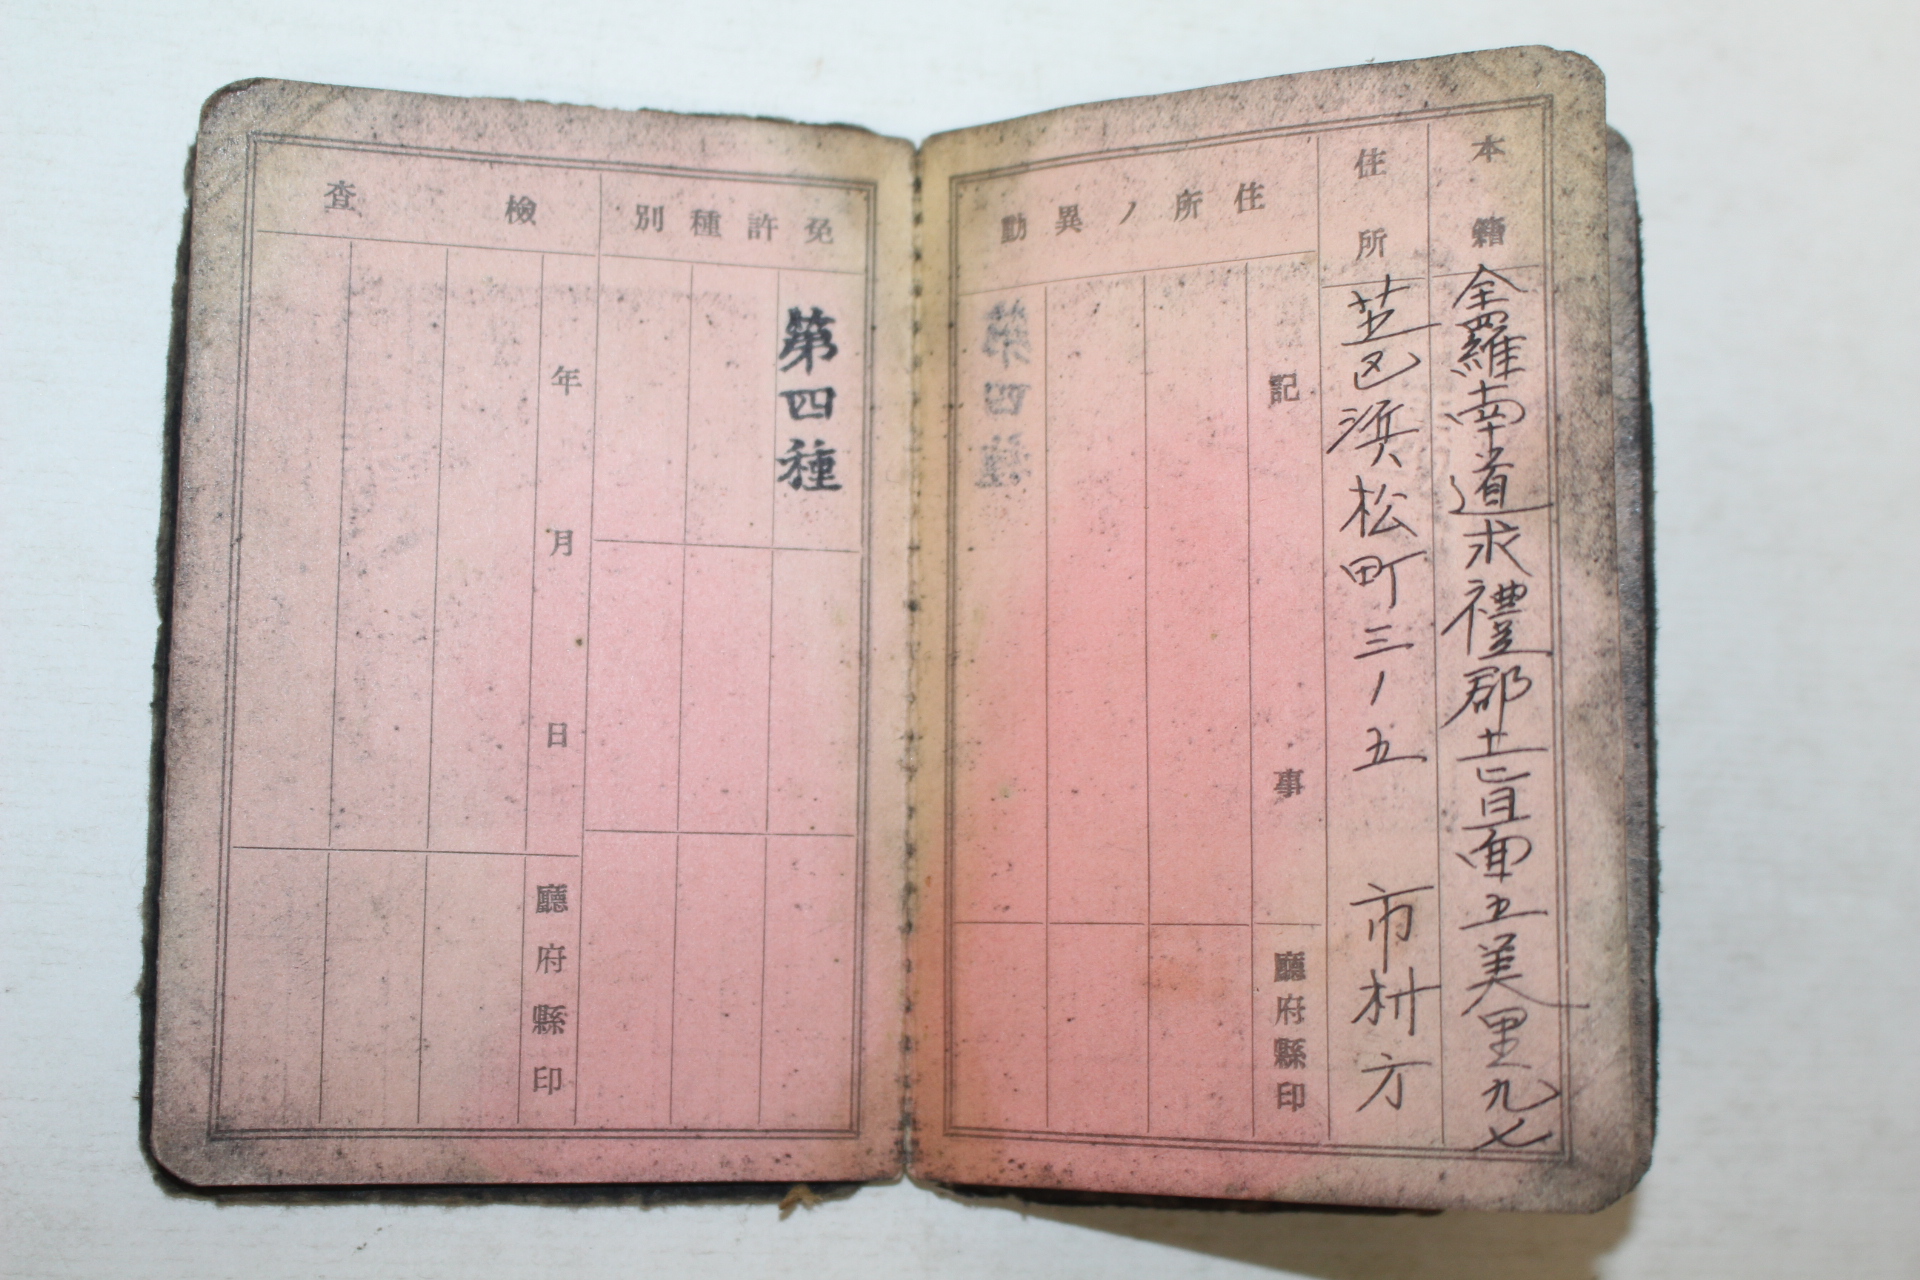 本籍
全羅南道求禮郡艹旨面五美里九七
住所
芝区浜松町三ノ五 市村方
住所ノ異動
記事
廳府縣印
免許種別
第四種
檢査
年月日
廳府縣印